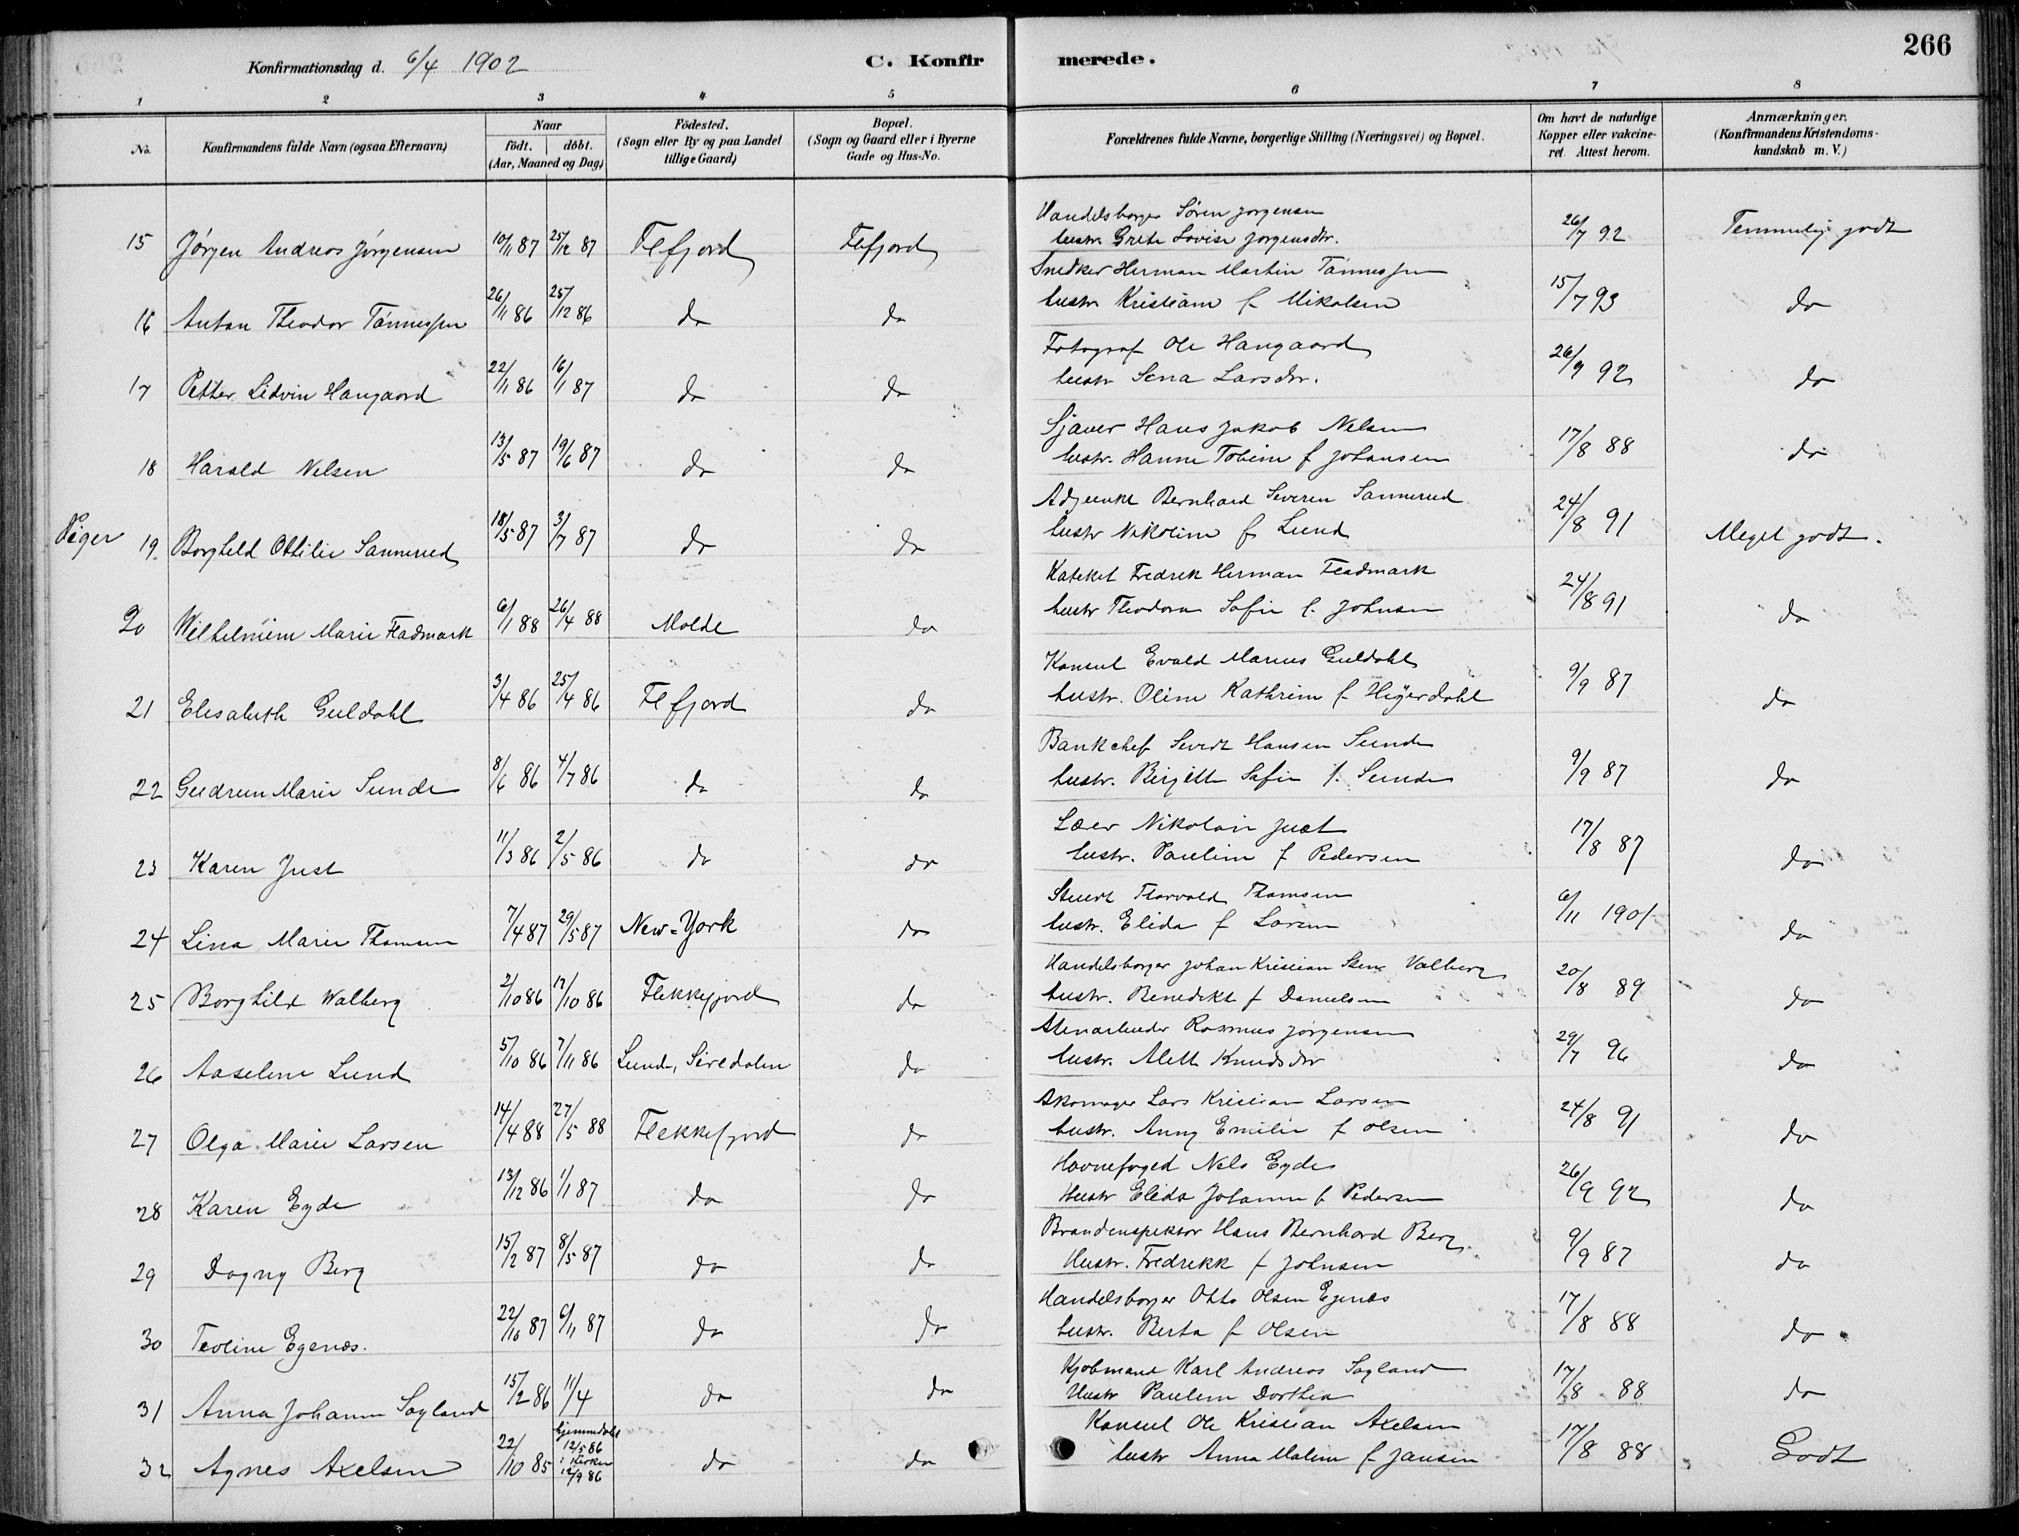 266
Konfirmationsdag d. 6/4 1902 C. Konfirmerede.
1 2 3 4 5 6 7 8
No. Konfirmandens fulde Navn (ogsaa Efternavn) Naar født. døbt. (Aar, Maaned og Dag) Fødested. (Sogn eller By og paa Landet tillige Gaard) Bopæl. (Sogn og Gaard eller i Byerne Gade og Hus-No. Forældrenes fulde Navne, borgerlige Stilling (Næringsvei) og Bopæl. Om havt de naturlige Kopper eller vakcineret. Attest herom. Anmærkninger. (Konfirmandens Kristendomskundskab m. V.)
15 Jørgen Andreas Jørgensen 10/11 87 25/12 87 Flfjord Flfjord Handelsborger Sören Jørgensen hustr. Grete Lovise Jørgensdtr. 26/7 92 Temmelig godt
16 Anton Theodor Tønnessen 26/11 86 25/12 86 do do Snedker Herman Martin Tønnessen hustr. Kristiane f Mikalsen 15/7 93 do
17 Petter Lidvin Hangaard 22/11 86 16/1 87 do do Fotograf Ole Hangaard hustr Sena Larsdtr. 26/9 92 do
18 Harald Nelsen 13/5 87 19/6 87 do do Sjauer Hans Jakob Nelsen hustr. Hanne Tobine f Johansen 17/8 88 do
Piger
19. Borghild Ottilie Sannerud 18/5 87 3/7 87 do do Adjunkt Bernhard Severin Sannerud hustr Nikoline f Lund 24/8 91 Meget godt.
20 Wilhelmine Marie Fladmark 6/1 88 26/4 88 Molde do Kateket Fredrik Herman Fladmark hustr Theodora Sofie f. Johnsen 24/8 91 do
21 Elisabeth Guldahl 3/4 86 25/4 86 Flfjord do Konsul Evald Marius Guldahl hustr. Oline Kathrine f Heyerdahl 9/9 87 do
22 Gudrun Marie Sunde 8/6 86 4/7 86 do do Bankchef Sivert Hansen Sunde hustr. Birgitte Sofie f. Sunde 9/9 87 do
23 Karen Just 11/3 86 2/5 86 do do Nikolai Just hustr. Pauline f Pedersen 17/8 87 do
24 Lina Marie Thomsen 7/4 87 29/5 87 New-York do Stuert Thorvald Thomsen hustr. Elida f Larsen 6/11 1901 do
25 Borghild Walberg 2/10 86 17/10 86 Flekkefjord do Handelsborger Johan Kristian Valberg hustr. Benedikte f Danielsen 20/8 89 do
26 Aaseline Lund 5/10 86 7/11 86 Lund, Siredalen do Stenarbeider Rasmus Jørgensen hustr. Alette Knudsdtr 29/7 96 do
27 Olga Marie Larsen 14/4 88 27/5 88 Flekkefjord do Skomager Lars Kristian Larsen hustr. Anny Emilie f Olsen 24/8 91 do
28 Karen Eyde 13/12 86 1/1 87 do do Havnefoged Nels Eyde Hustr Elida Johanne f Pedersen 26/9 92 do
29 Dagny Berg 15/2 87 8/5 87 do do Brandinspektør Hans Bernhard Berg Hustr. Fredrikke f Johnsen 9/9 87 do
30 Teoline Egenæs. 22/10 87 6/11 87 do do Handelsborger Otto Olsen Egenæs hustr. Berta f Olsen 17/8 88 do
31 Anna Johanne Søyland 15/2 86 11/4 do do Kjøbmand Karl Andreas Søyland Hustr Pauline Dorthea 17/8 88 do
32 Agnes Axelsen 22/10 85 hjemmedøbt 12/5 86 i Kirken 12/9 86 do do Konsul Ole Kristian Axelsen hustr Anna Maline f Jansen 17/8 88 Godt